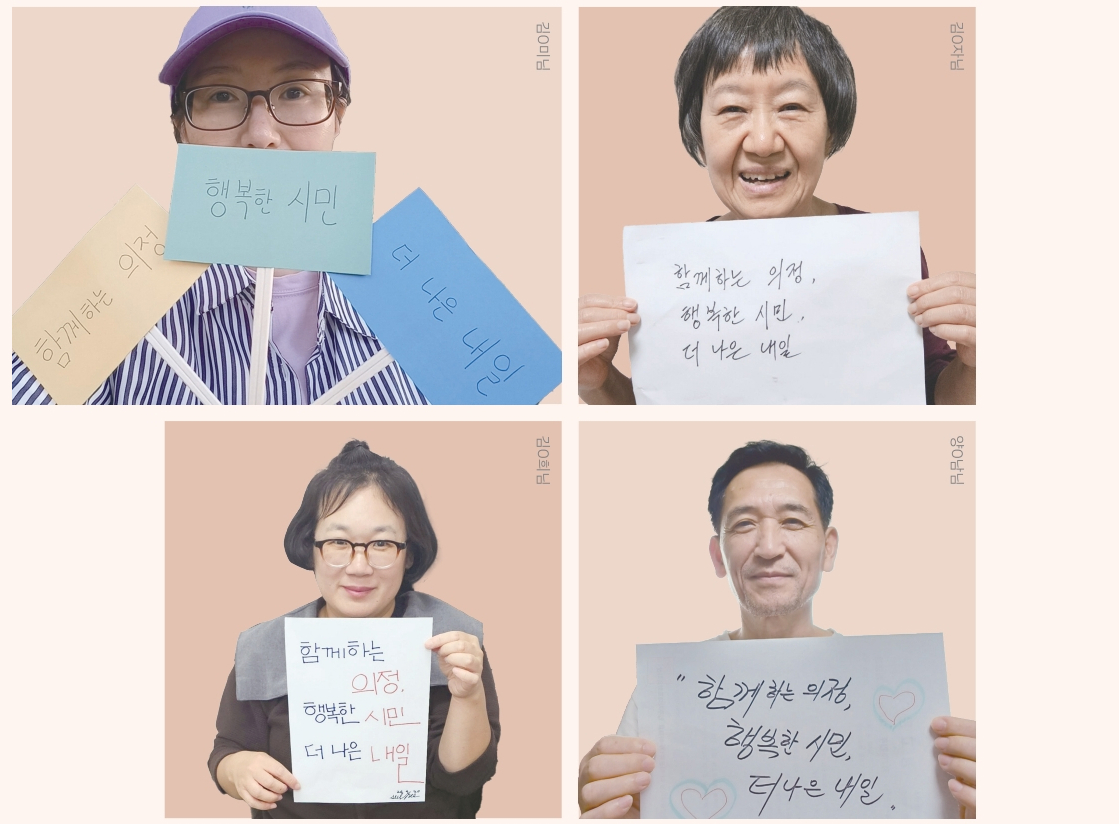 김0미님
함께하는 의정
행복한 시민
더 나은 내일
김0자님
함께하는 의정,
행복한 시민,
더 나은 내일
김0희님
함께하는
의정,
행복한 시민
더 나은 내일
양0남님
"함께하는 의정,
행복한 시민,
더 나은 내일"